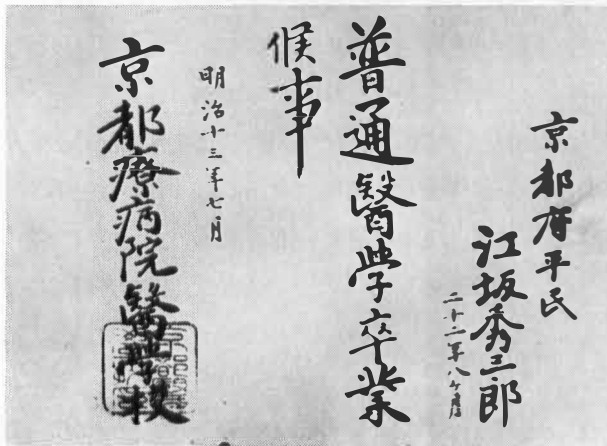 京都府平民
江坂秀三郎
二十二年八ケ月
普通醫學卒業
候事
明治十三年七月
京都療病院醫學校